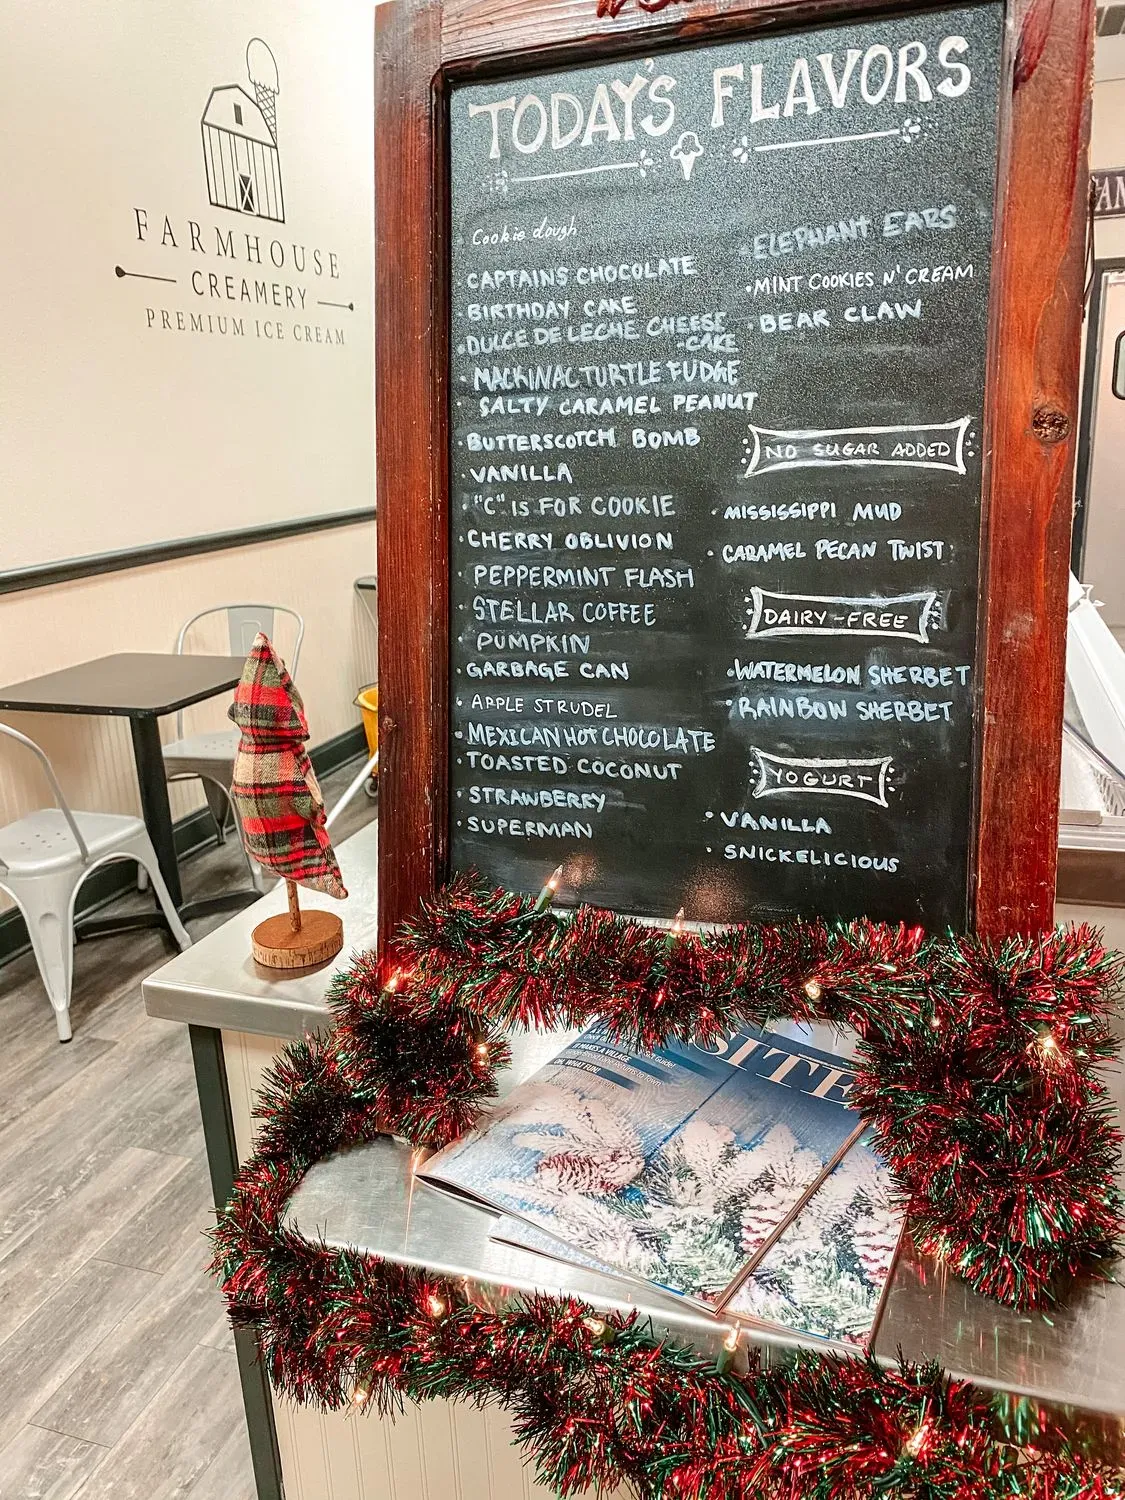 FARMHOUSE
CREAMERY
PREMIUM ICE CREAM
TODAY'S FLAVORS
Cookie dough
CAPTAINS CHOCOLATE
BIRTHDAY CAKE
•DULCE DE LECHE CHEESE
-CAKE
• MACKINAC TURTLE FUDGE
• SALTY CARAMEL PEANUT
•BUTTERSCOTCH BOMB
•VANILLA
•"C" IS FOR COOKIE
•CHERRY OBLIVION
• PEPPERMINT FLASH
• STELLAR COFFEE
• PUMPKIN
•GARBAGE CAN
• APPLE STRUDEL
•MEXICAN HOT CHOCOLATE
•TOASTED COCONUT
•STRAWBERRY
•SUPERMAN
•ELEPHANT EARS
•MINT COOKIES N' CREAM
•BEAR CLAW
NO SUGAR ADDED
• MISSISSIPPI MUD
• CARAMEL PECAN TWIST
DAIRY-FREE
•WATERMELON SHERBET
•RAINBOW SHERBET
YOGURT
•VANILLA
• SNICKELICIOUS
SITE
A VILLAGE